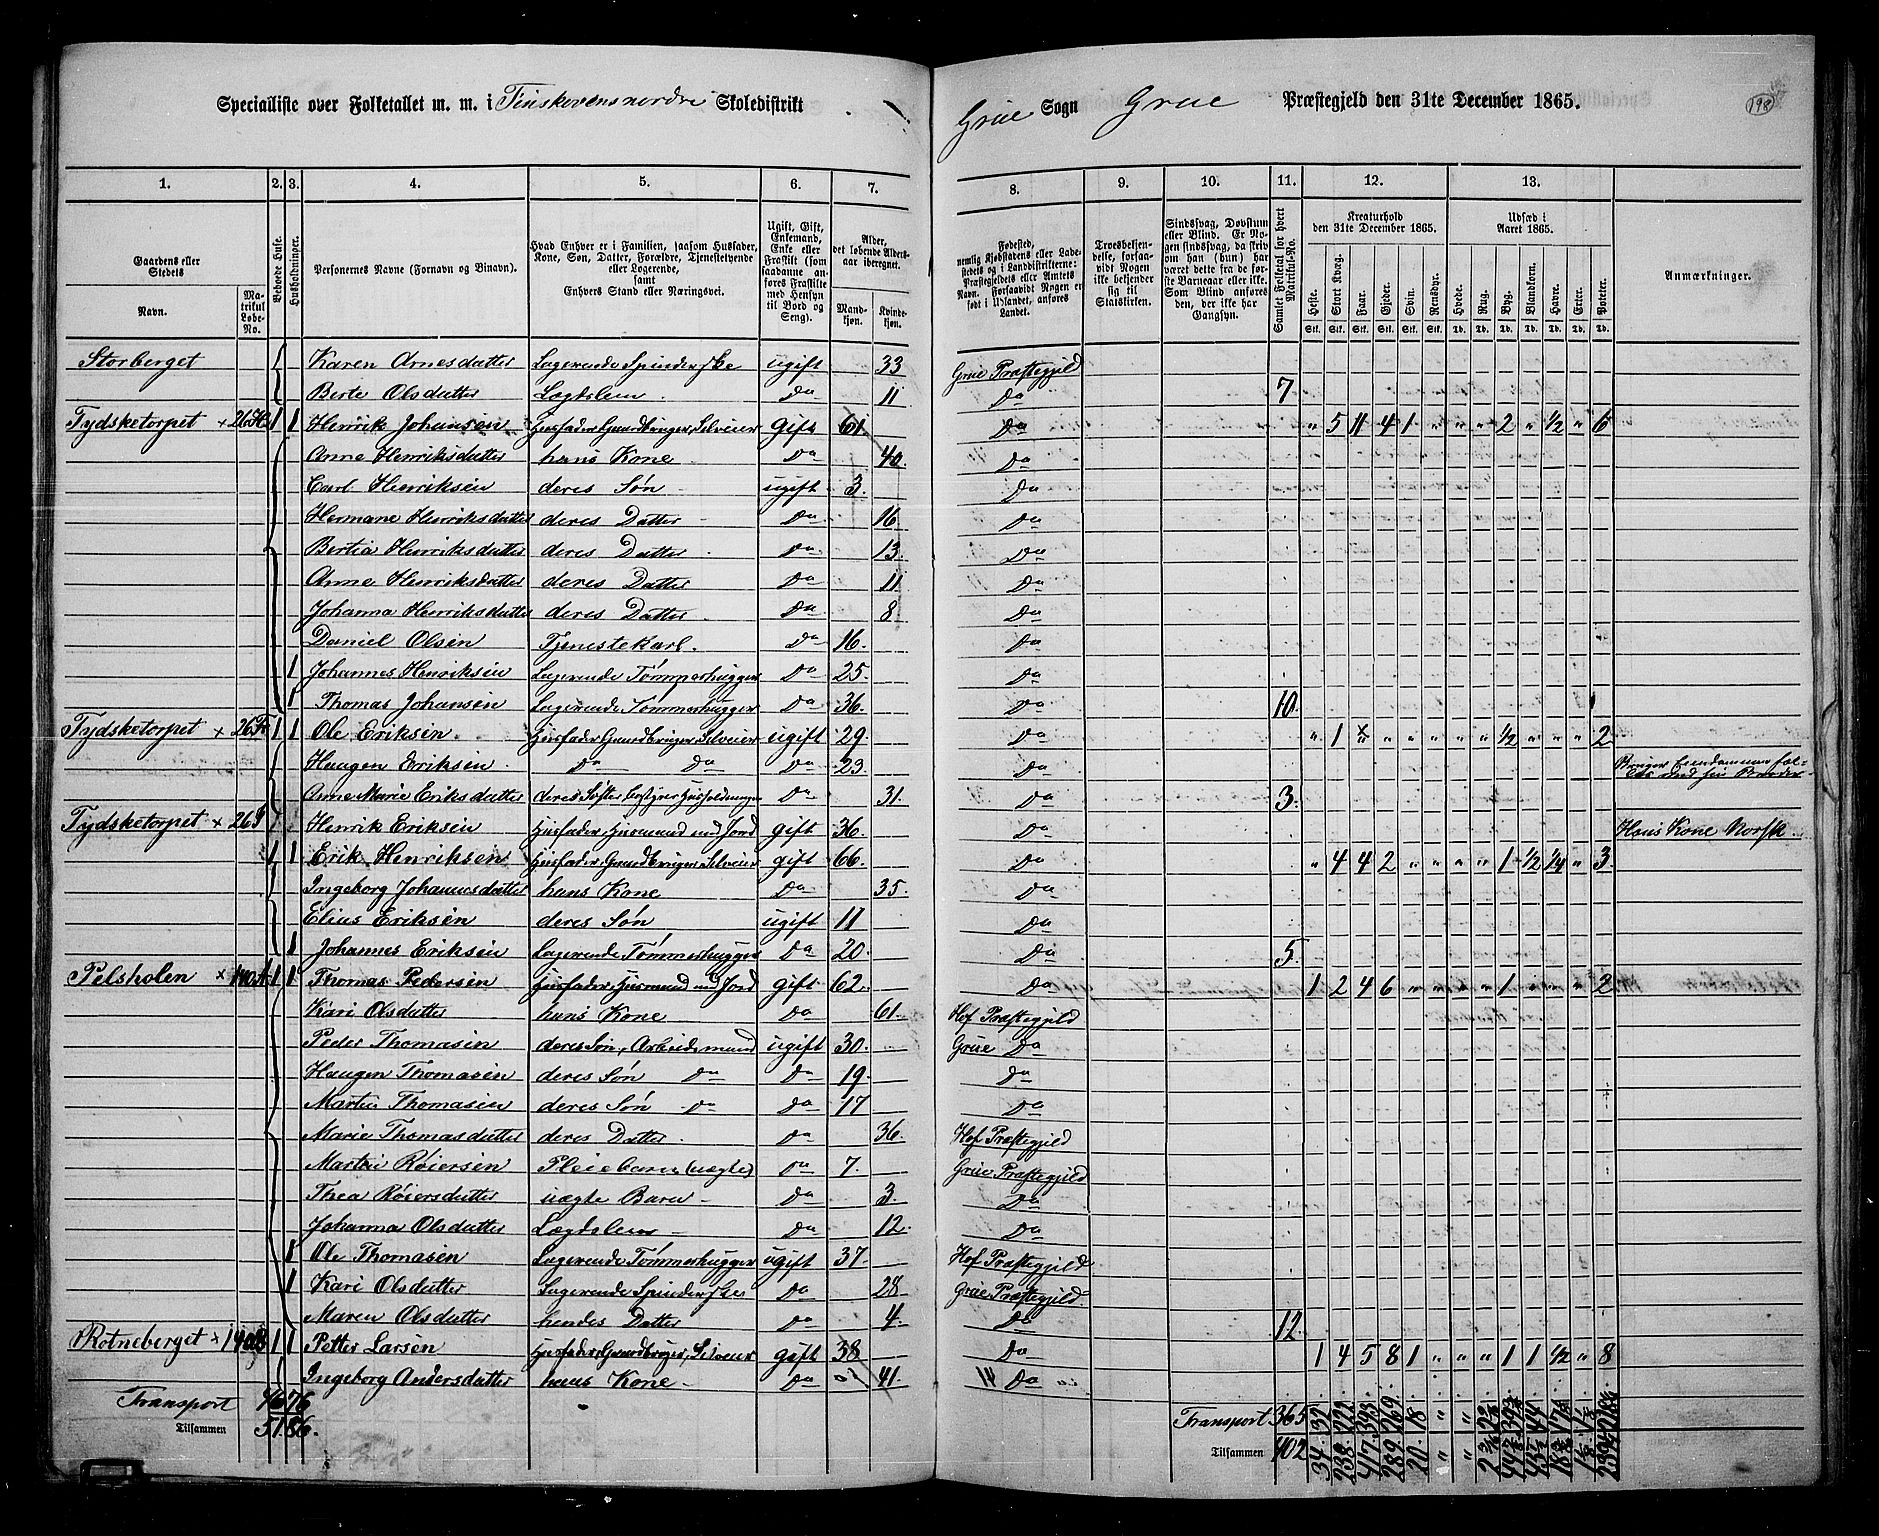 Specialliste over Folketallet m. m. i Finskovens nordre Skoledistrikt
Grue Sogn Grue Præstegjeld den 31te December 1865.
198
1. 2. 3. 4. 5. 6. 7. 8. 9. 10. 11. 12. 13.
Gaardens eller Stedets
Navn.
Matrikul Løbe-No.
Beboede Huse.
Husholdninger.
Personernes Navne (Fornavn og Binavn).
Hvad Enhver er i Familien, saasom Husfader, Kone, Søn, Datter, Forældre, Tjenestetyende eller Logerende, samt Enhvers Stand eller Næringsvei.
Ugift, Gift, Enkemand, Enke eller Fraskilt (som saadanne anføres Fraskilte med Hensyn til Bord og Seng).
Alder, det løbende Aldersaar iberegnet.
Mandkjøn.
Kvindekjøn.
Fødested, nemlig Kjøbstadens eller Ladestedets og i Landdistrikterne: Præstegjeldets eller Amtets Navn. Forsaavidt Nogen er født i Udlandet, anføres Landet.
Troesbekjendelse, forsaavidt Nogen ikke bekjender sig til Statskirken.
Sindssvag, Døvstum eller Blind. Er Nogen sindssvag, da skrives om han (hun) har været dette fra de første Barneaar eller ikke. Som Blind anføres den, der ikke har Gangsyn.
Samlet Folketal for hvert Matrikul-No.
Kreaturhold den 31te December 1865.
Heste. Stort Kvæg. Faar. Gjeder. Svin. Rensdyr.
Udsæd i Aaret 1865.
Hvede. Rug. Byg. Blandkorn. Havre. Erter. Poteter.
Stk. Stk. Stk. Stk. Stk. Stk. Td. Td. Td. Td. Td. Td. Td.
Anmærkninger.
Storberget Karen Arnesdatter Logerende Spinderske ugift 33 Grue Præstegjeld
Berte Olsdatter Lægdslem Do 11 Do 7
Tydsketorpet × 26 1 1 Henrik Johansen Husfader, Gaardbruger, Selveier gift 61 Do " 5 11 4 1 " " " 2 " ½ " 6
Anne Henriksdatter hans Kone Do 40 Do
Carl Henriksen deres Søn ugift 3 Do
Hermane Henriksdatter deres Datter Do 16 Do
Bertia Henriksdatter deres Datter Do 13 Do
Anne Henriksdatter deres Datter Do 11 Do
Johanna Henriksdatter deres Datter Do 8 Do
Daniel Olsen Tjenestekarl Do 16 Do
1 Johannes Henriksen Logerende Tømmerhugger Do 25 Do
1 Thomas Johansen Logerende Tømmerhugger Do 36 Do 10
Tydsketorpet × 26 1 1 Ole Eriksen Husfader, Gaardbruger, Selveier ugift 29 Do " 1 " " " " " ½ " " " 2
Haagen Eriksen Do Do Do 23 Do Bruger Eiendommen fælles med sin Broder
Anne Marie Eriksdatter deres Søster bestyrer Husholdningen Do 31 Do 3
Tydsketorpet × 26 Henrik Eriksen Husfader, Husmand med Jord gift 36 Do Hans Kone Norsk
1 1 Erik Henriksen Husfader, Gaardbruger, Selveier gift 66 Do " 4 4 2 " " " " 1 ½ ¼ " 3
Ingeborg Johannesdatter hans Kone Do 35 Do
Elius Eriksen deres Søn ugift 11 Do
1 Johannes Eriksen Logerende Tømmerhugger Do 20 Do 5
Pelsholen × 140 1 1 Thomas Pedersen Husfader, Husmand med Jord gift 62 Do 1 2 4 6 " " " " 1 " " " 2
Kari Olsdatter hans Kone Do 61 Hof Præstegjeld
Peder Thomasen deres Søn, Arbeidsmand ugift 30 Grue Do
Haagen Thomasen deres Søn Do Do 19 Do
Martin Thomasen deres Søn Do Do 17 Do
Marie Thomasdatter deres Datter Do 36 Hof Præstegjeld
Martin Røiersen Pleiebarn (uægte) Do 7 Grue Præstegjeld
Thea Røiersdatter uægte Barn Do 3 Do
Johanna Olsdatter Lægdslem Do 12 Do
1 Ole Thomasen Logerende Tømmerhugger ugift 37 Hof Præstegjeld
1 Kari Olsdatter Logerende Spinderske Do 28 Grue Præstegjeld
Maren Olsdatter hendes Datter Do 4 Do 12
Rotneberget × 140 1 1 Petter Larsen Husfader, Gaardbruger, Selveier gift 38 Do 1 4 5 8 1 " " " 1 1 ½ " 8
Ingeborg Andersdatter hans Kone Do 41 Do
Transport 46 76 Transport 365 32 222 393 269 18 " "
Tilsammen 51 86. Tilsammen 402 34 238 417 289 20 " "